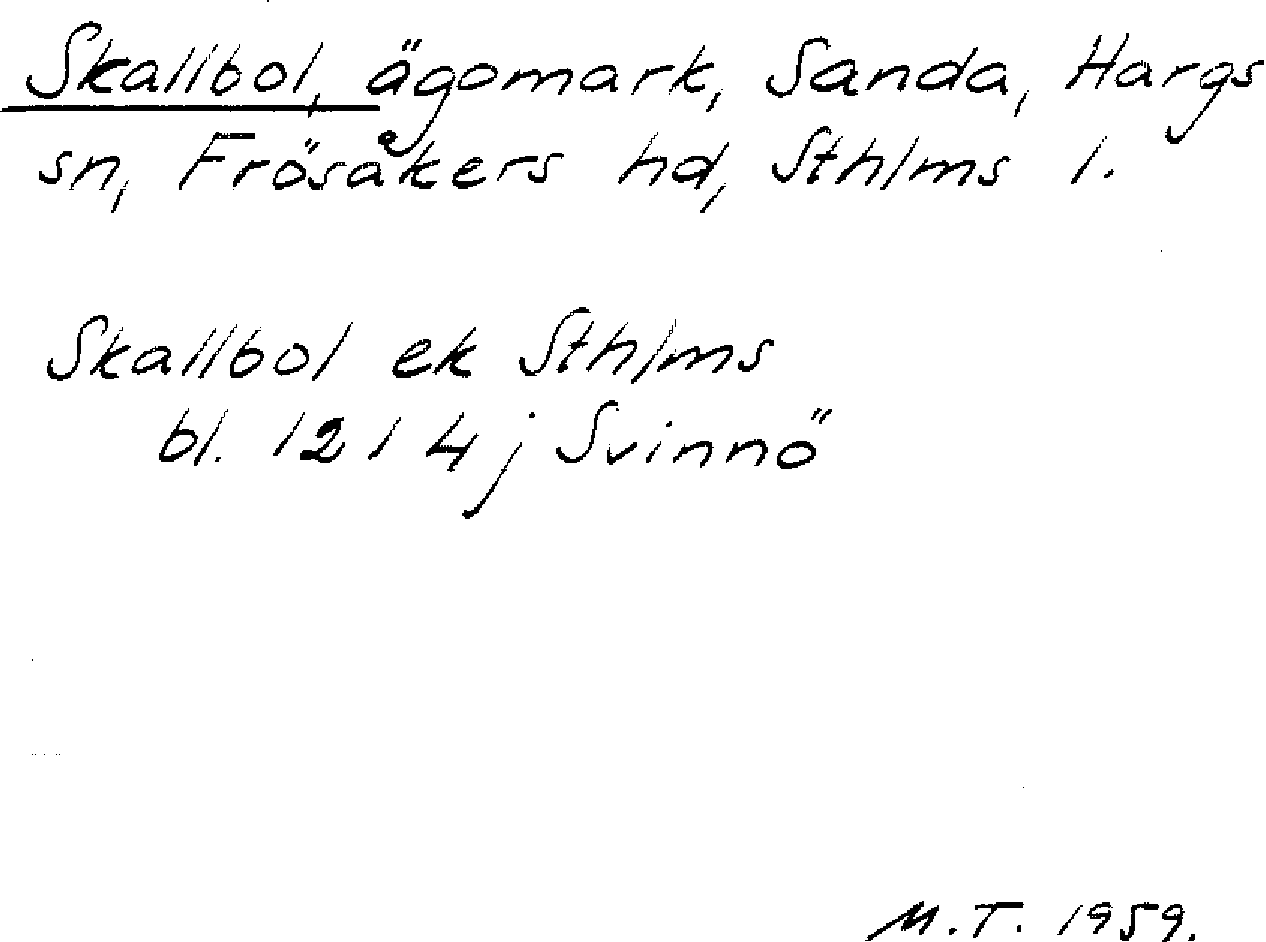 Skallbol, ägomark, Sanda, Hargs
sn, Frösåkers hd, Sthlms l.
Skallbol ek Sthlms
bl. 121 4j Svinnö
M.T. 1959.